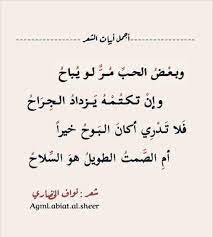 أجمل أبيات الشعر
وبعْضُ الحبِّ مُرٌّ لو يُباحُ
وإنْ تكتُمْهُ يَزدادُ الجِراحُ
فَلا تَدْرِي أكانَ البَوحُ خيراً
أمِ الصَّمتُ الطويلُ هوَ السِّلاحُ
شعر : نواف الخضاري
Agml.abiat.al.sheer